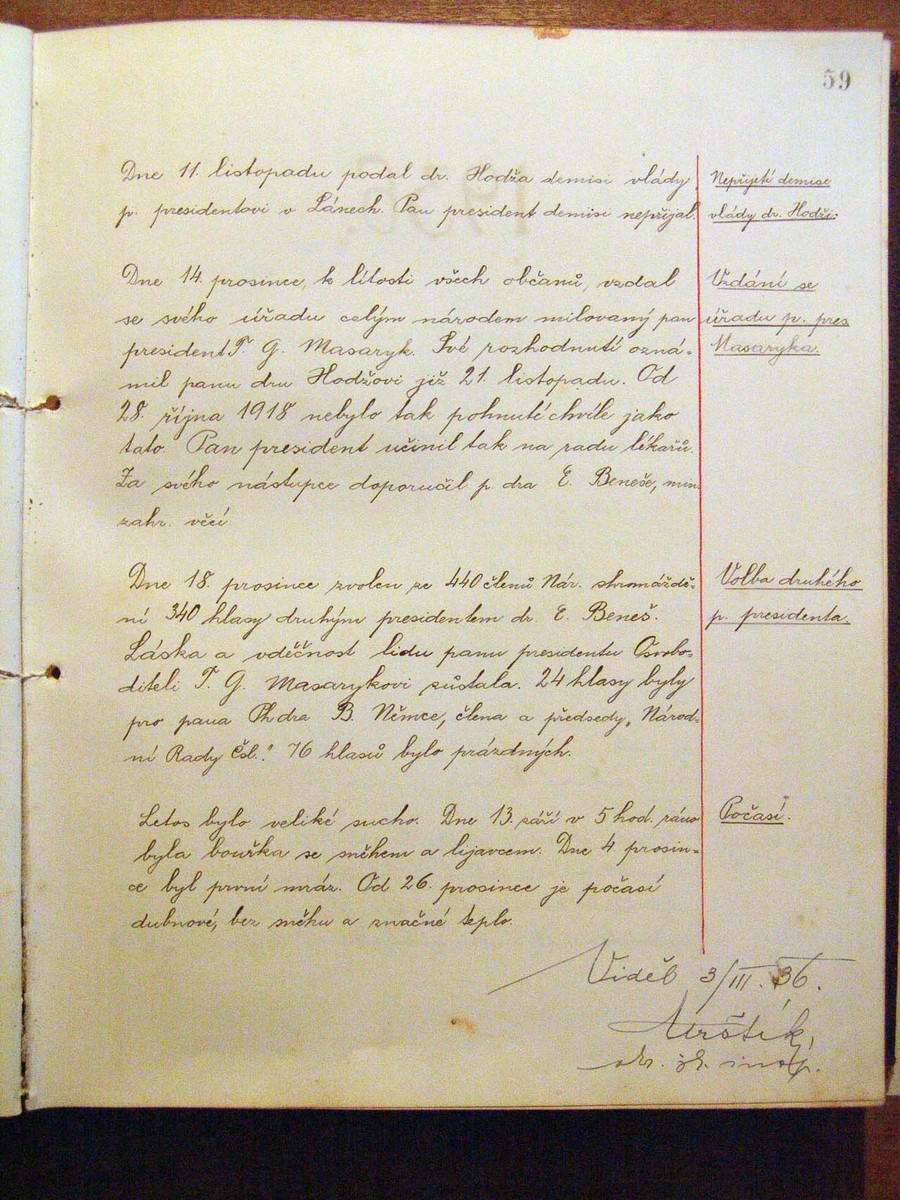 59
Dne 11. listopadu podal dr. Hodža demisi vlády
p. presidentovi v Lánech. Pan president demisi nepřijal.
Nepřijetí demise
vlády dr. Hodži.
Dne 14. prosince, k lítosti všech občanů, vzdal
se svého úřadu celým národem milovaný pan
president T. G. Masaryk. Své rozhodnutí ozná-
mil panu dru Hodžovi již 21. listopadu. Od
28. října 1918 nebylo tak pohnuté chvíle jako
tato. Pan president učinil tak na radu lékařů.
Za svého nástupce doporučil p. dra E. Beneše, min.
zahr. věcí.
Vzdání se
úřadu p. pres
Masaryka.
Dne 18. prosince zvolen ze 440 členů Nár. shromáždě-
ní 340 hlasy druhým presidentem dr. E. Beneš.
Láska a vděčnost lidu panu presidentu Osvobo-
diteli T. G. Masarykovi zůstala. 24 hlasy byly
pro pana Ph dra B. Němce, člena a předsedy „Národ-
ní Rady Čsl." 76 hlasů bylo prázdných.
Volba druhého
p. presidenta.
Letos bylo veliké sucho. Dne 13. září v 5 hod. ráno
byla bouřka se sněhem a lijavcem. Dne 4. prosin-
ce byl první mráz. Od 26. prosince je počasí
dubnové, bez sněhu a značné teplo.
Počasí.
Viděl 3/III. 36.